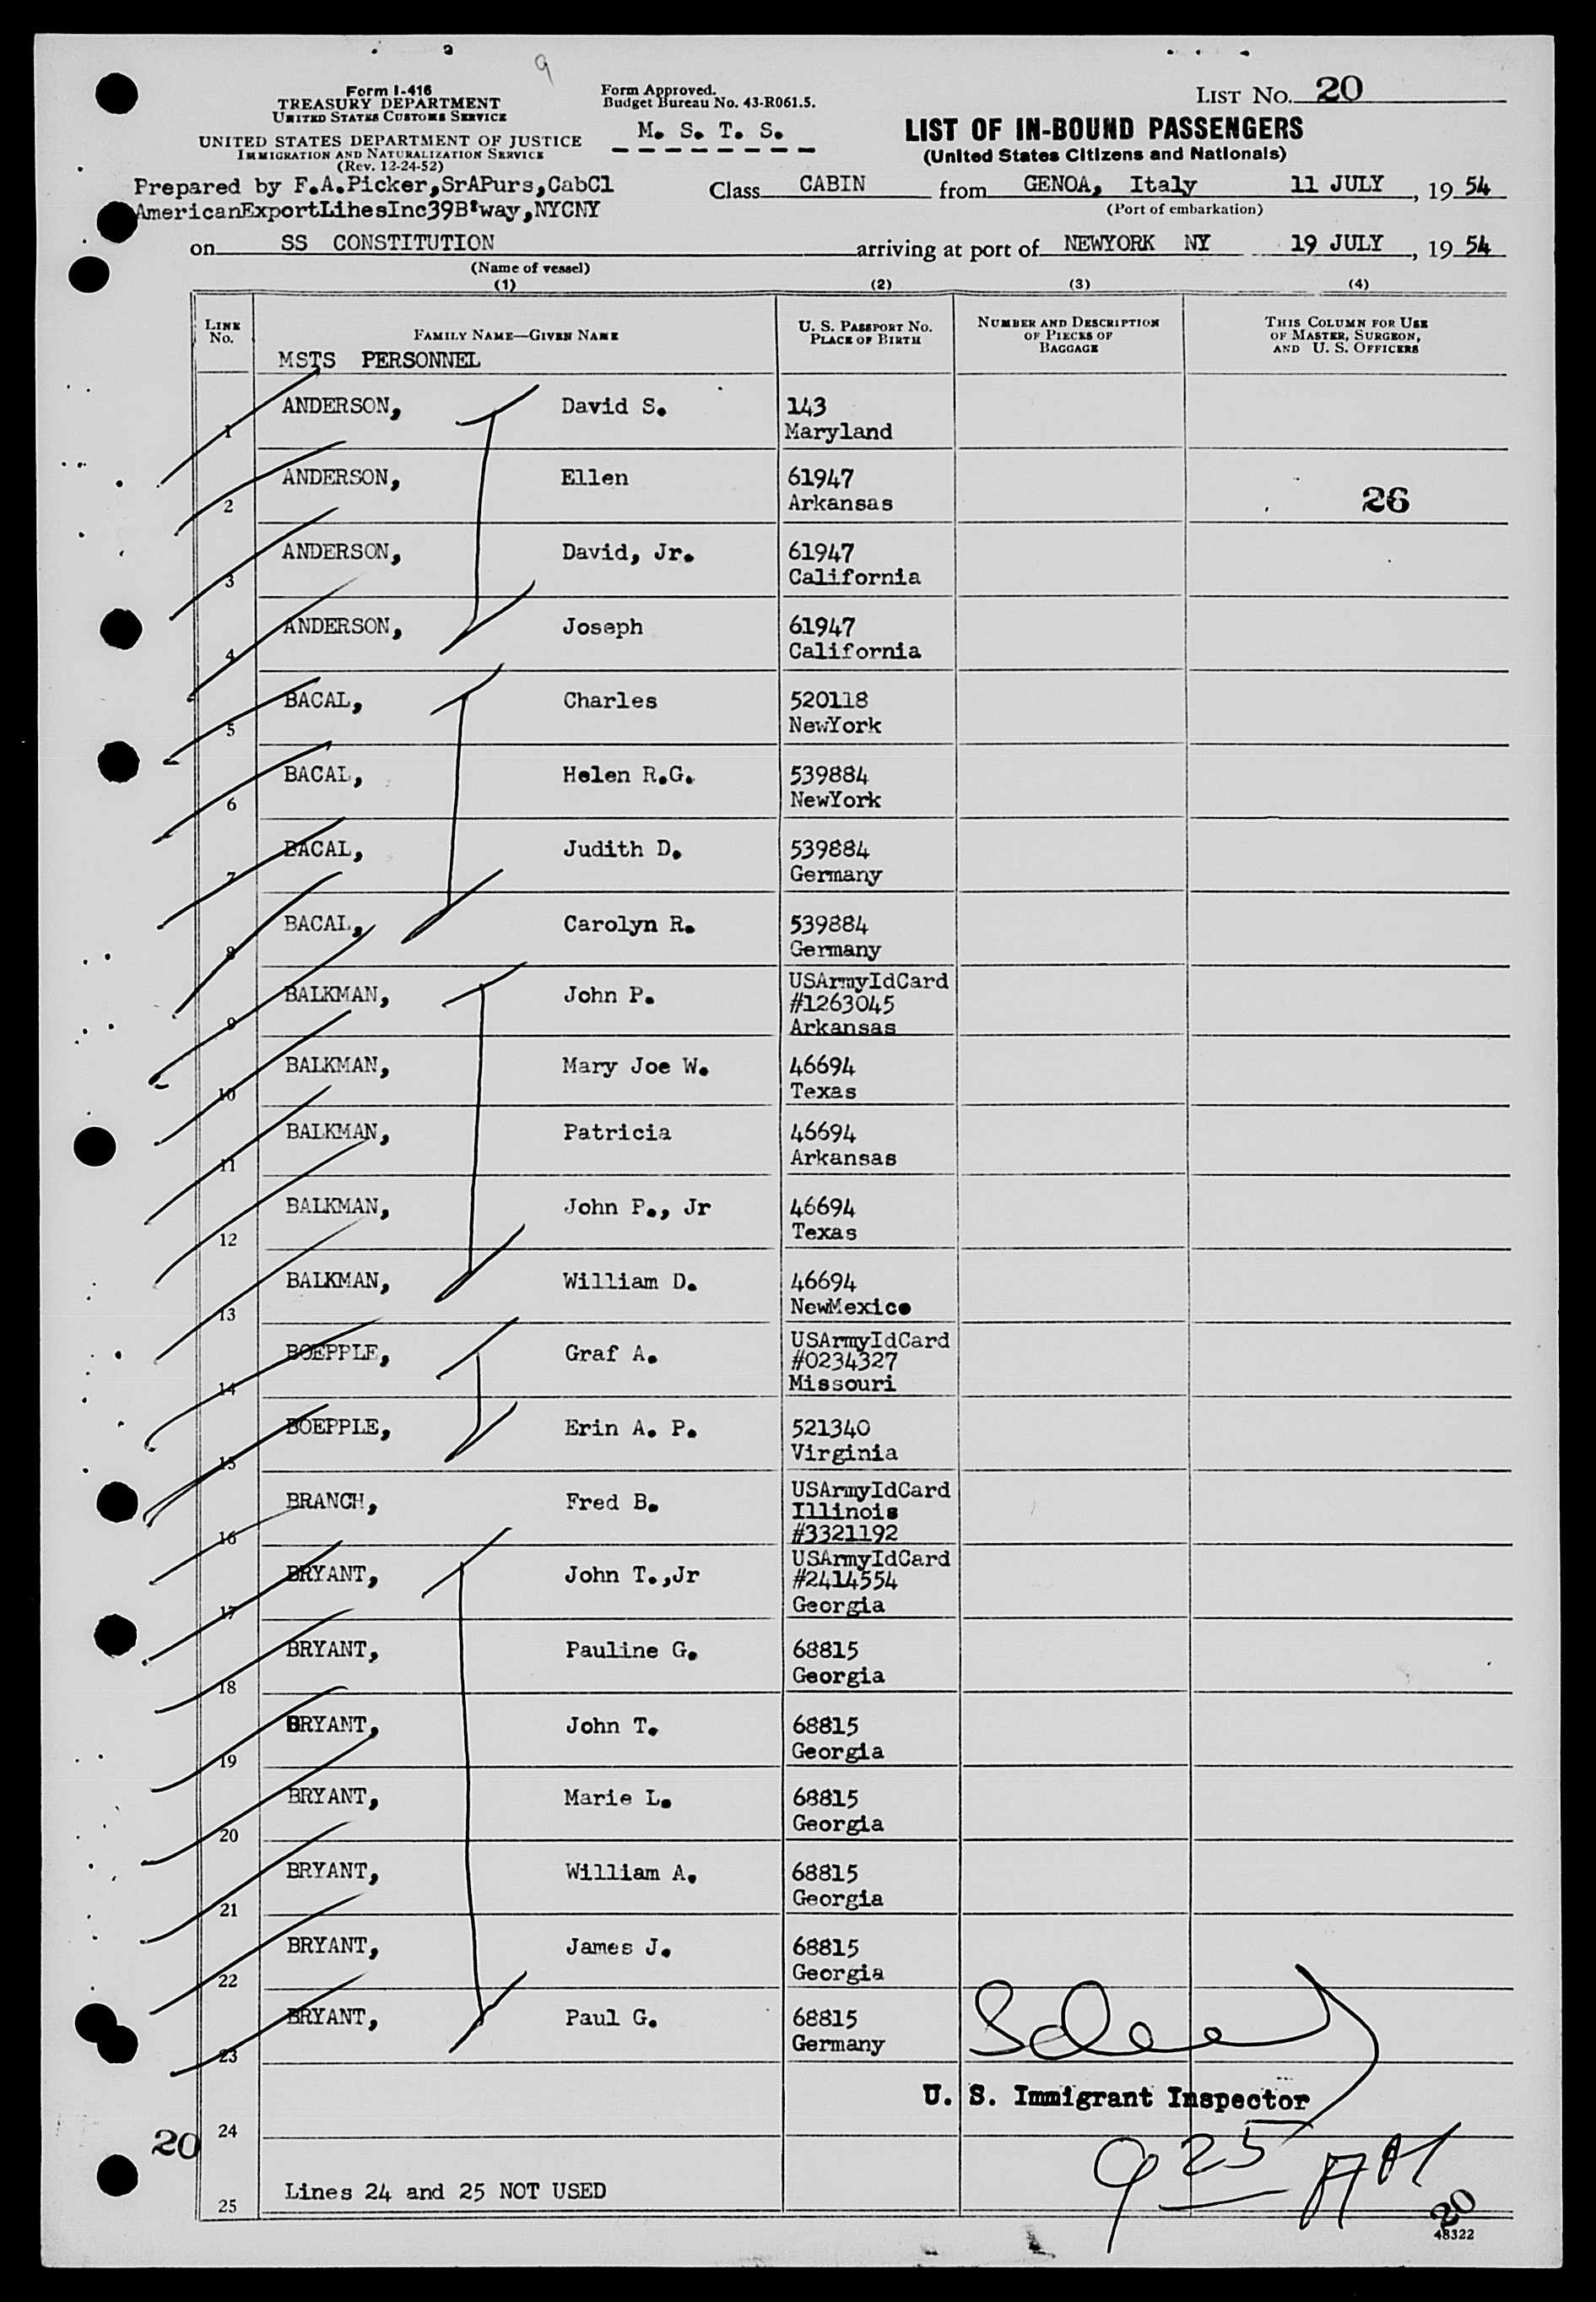 9
Form I-416
TREASURY DEPARTMENT
UNITED STATES CUSTOMS SERVICE
UNITED STATES DEPARTMENT OF JUSTICE
IMMIGRATION AND NATURALIZATION SERVICE
(Rev. 12-24-52)
Form Approved.
Budget Bureau No. 43-R061.5.
M. S. T. S.
LIST NO. 20
LIST OF IN-BOUND PASSENGERS
(United States Citizens and Nationals)
Prepared by F.A.Picker,SrAPurs,CabCl
AmericanExportLihesInc39B'way,NYCNY
Class CABIN from GENOA, Italy 11 JULY, 19 54
(Port of embarkation)
on SS CONSTITUTION arriving at port of NEWYORK NY 19 JULY, 19 54
(Name of vessel)
(1) (2) (3) (4)
LINE NO. FAMILY NAME—GIVEN NAME U. S. PASSPORT NO. PLACE OF BIRTH NUMBER AND DESCRIPTION OF PIECES OF BAGGAGE THIS COLUMN FOR USE OF MASTER, SURGEON, AND U. S. OFFICERS
MSTS PERSONNEL
1 ANDERSON, David S. 143
Maryland
2 ANDERSON, Ellen 61947
Arkansas 26
3 ANDERSON, David, Jr. 61947
California
4 ANDERSON, Joseph 61947
California
5 BACAL, Charles 520118
NewYork
6 BACAL, Helen R.G. 539884
NewYork
7 BACAL, Judith D. 539884
Germany
8 BACAL, Carolyn R. 539884
Germany
9 BALKMAN, John P. USArmyIdCard
#1263045
Arkansas
10 BALKMAN, Mary Joe W. 46694
Texas
11 BALKMAN, Patricia 46694
Arkansas
12 BALKMAN, John P., Jr 46694
Texas
13 BALKMAN, William D. 46694
NewMexico
14 BOEPPLE, Graf A. USArmyIdCard
#0234327
Missouri
15 BOEPPLE, Erin A. P. 521340
Virginia
16 BRANCH, Fred B. USArmyIdCard
Illinois
#3321192
17 BRYANT, John T.,Jr USArmyIdCard
#2414554
Georgia
18 BRYANT, Pauline G. 68815
Georgia
19 BRYANT, John T. 68815
Georgia
20 BRYANT, Marie L. 68815
Georgia
21 BRYANT, William A. 68815
Georgia
22 BRYANT, James J. 68815
Georgia
23 BRYANT, Paul G. 68815
Germany
U. S. Immigrant Inspector
20 24
9 25 AM
25 Lines 24 and 25 NOT USED
20
48322